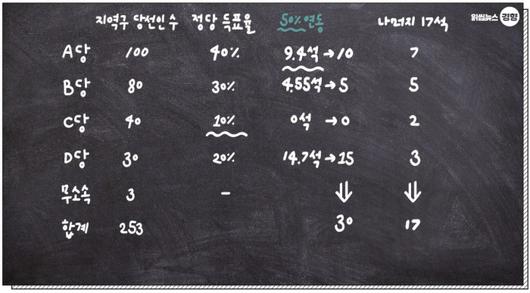 지역구 당선인 수 정당 득표율 50% 연동 나머지 17석
읽씹뉴스 경향
A당 100 40% 9.4석→10 7
B당 80 30% 4.55석→5 5
C당 40 10% 0석→0 2
D당 30 20% 14.7석→15 3
무소속 3 -
합계 253 30 17